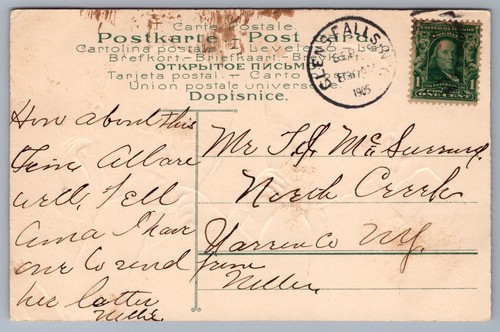 Carte postale
Postkarte — Post card
Cartolina postale — Levelező-Lap
Brefkort — Briefkaart — Brevkort
ОТКРЫТОЕ ПИСЬМО
Tarjeta postal — Carto
Union postale universelle
Dopisnice.
GLENS FALLS N.Y.
1905
1
How about this
time All are
well, Tell
Anna I have
one to send
her later
Nellie
Mr
North Creek
Warren Co N.Y.
from
Nellie